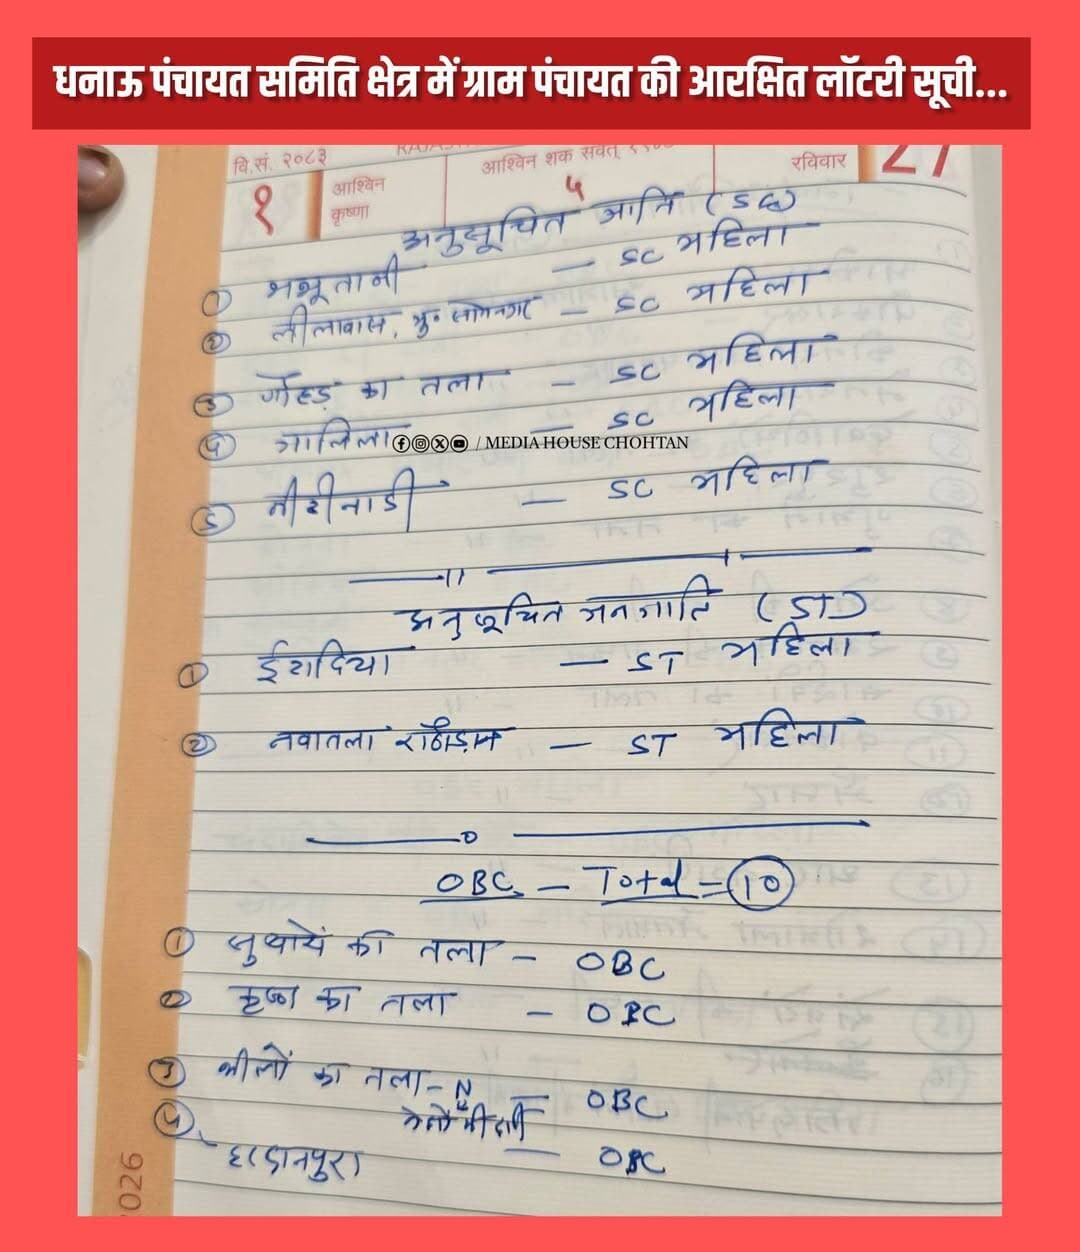 धनाऊ पंचायत समिति क्षेत्र में ग्राम पंचायत की आरक्षित लॉटरी सूची...
वि.सं. २०८३
आश्विन शक संवत्
रविवार
27
१
आश्विन
कृष्णा
५
अनुसूचित जाति (SC)
① भभूतानी — SC महिला
② लीलावास, — SC महिला
③ गोहड़ का तला — SC महिला
④ — SC महिला
/ MEDIA HOUSE CHOHTAN
⑤ — SC महिला
अनुसूचित जनजाति (ST)
① ईशदिया — ST महिला
② नवातला राठौड़ान — ST महिला
OBC — Total = 10
① की तला — OBC
② कृष्ण का तला — OBC
③ भीलों का तला - N — OBC
④
— OBC
2026